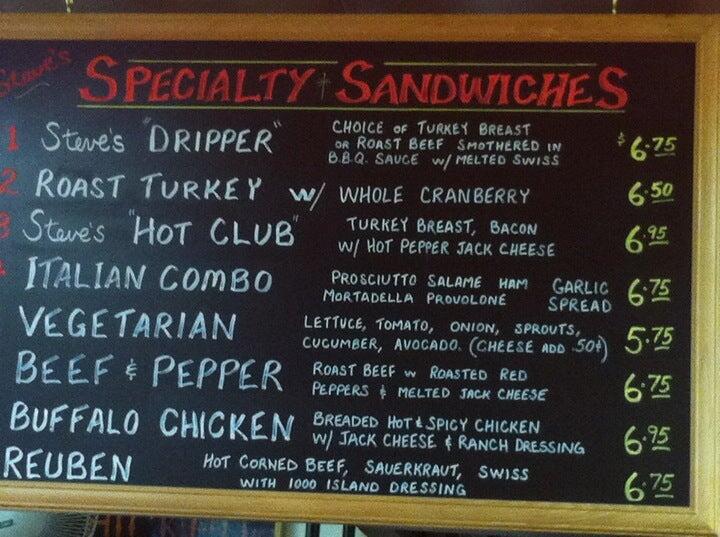 Steve's
SPECIALTY SANDWICHES
1 Steve's "DRIPPER" CHOICE OF TURKEY BREAST
OR ROAST BEEF SMOTHERED IN
B.B.Q. SAUCE W/ MELTED SWISS $6.75
2 ROAST TURKEY W/ WHOLE CRANBERRY 6.50
3 Steve's "HOT CLUB" TURKEY BREAST, BACON
W/ HOT PEPPER JACK CHEESE 6.95
ITALIAN COMBO PROSCIUTTO SALAME HAM GARLIC
MORTADELLA PROVOLONE SPREAD 6.75
VEGETARIAN LETTUCE, TOMATO, ONION, SPROUTS,
CUCUMBER, AVOCADO. (CHEESE ADD .50¢) 5.75
BEEF & PEPPER ROAST BEEF W ROASTED RED
PEPPERS & MELTED JACK CHEESE 6.75
BUFFALO CHICKEN BREADED HOT & SPICY CHICKEN
W/ JACK CHEESE & RANCH DRESSING 6.95
REUBEN HOT CORNED BEEF, SAUERKRAUT, SWISS
WITH 1000 ISLAND DRESSING 6.75